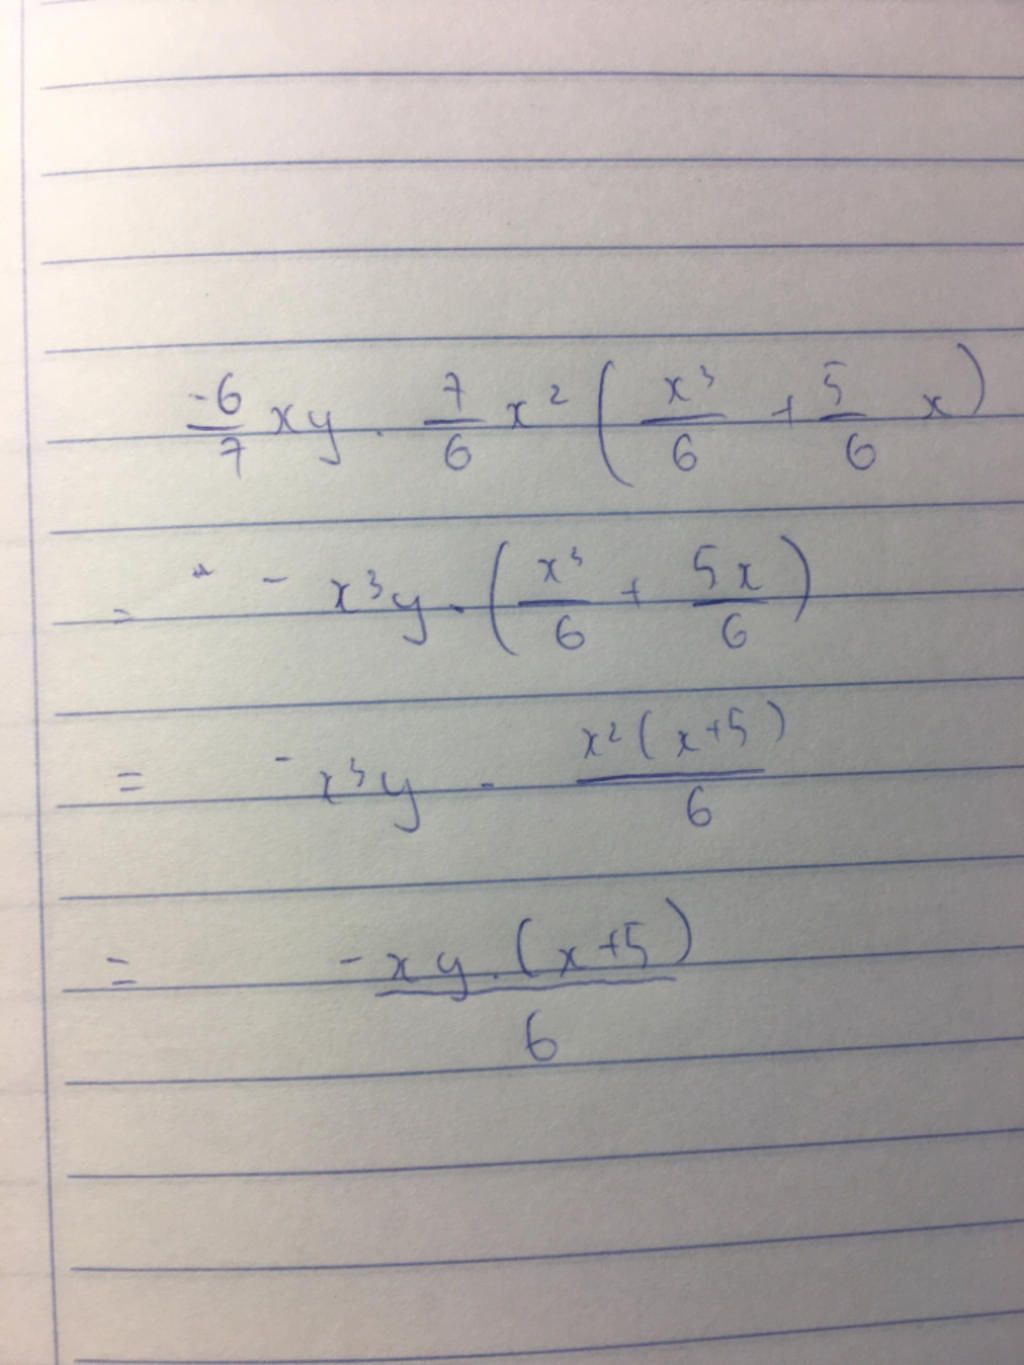 -6/7 xy . 7/6 x² ( x³/6 + 5/6 x )
= - x³y . ( x³/6 + 5x/6 )
= - x³y . x²(x+5)/6
= -xy.(x+5)/6